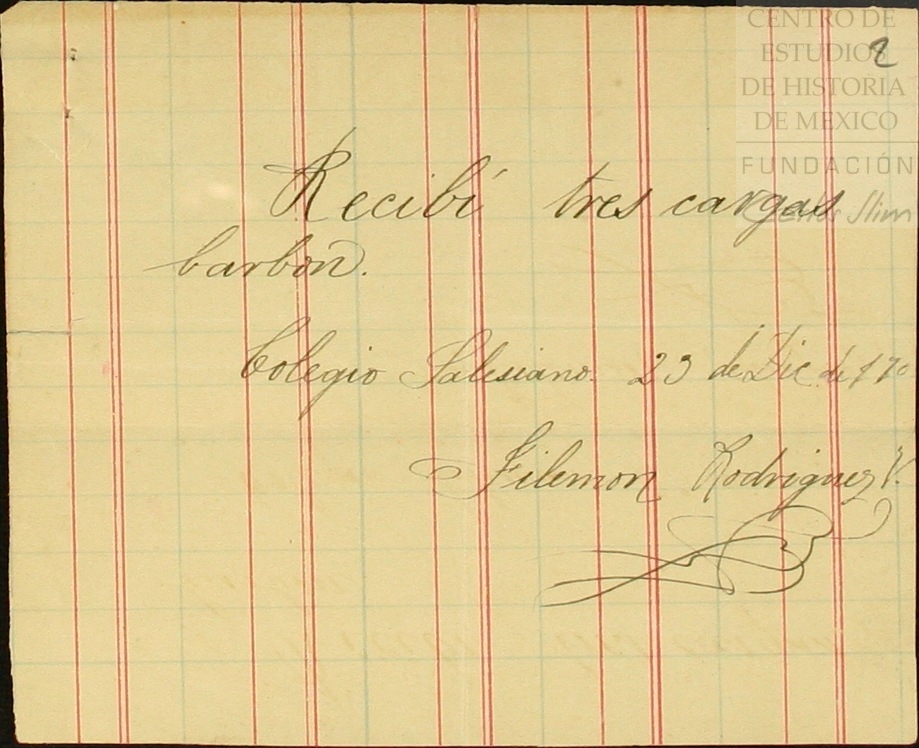 CENTRO DE
ESTUDIOS
DE HISTORIA
DE MEXICO
FUNDACIÓN
Carlos Slim
2
Recibí tres cargas
carbón.
Colegio Salesiano. 23 de Dic. de
Filemon Rodriguez V.